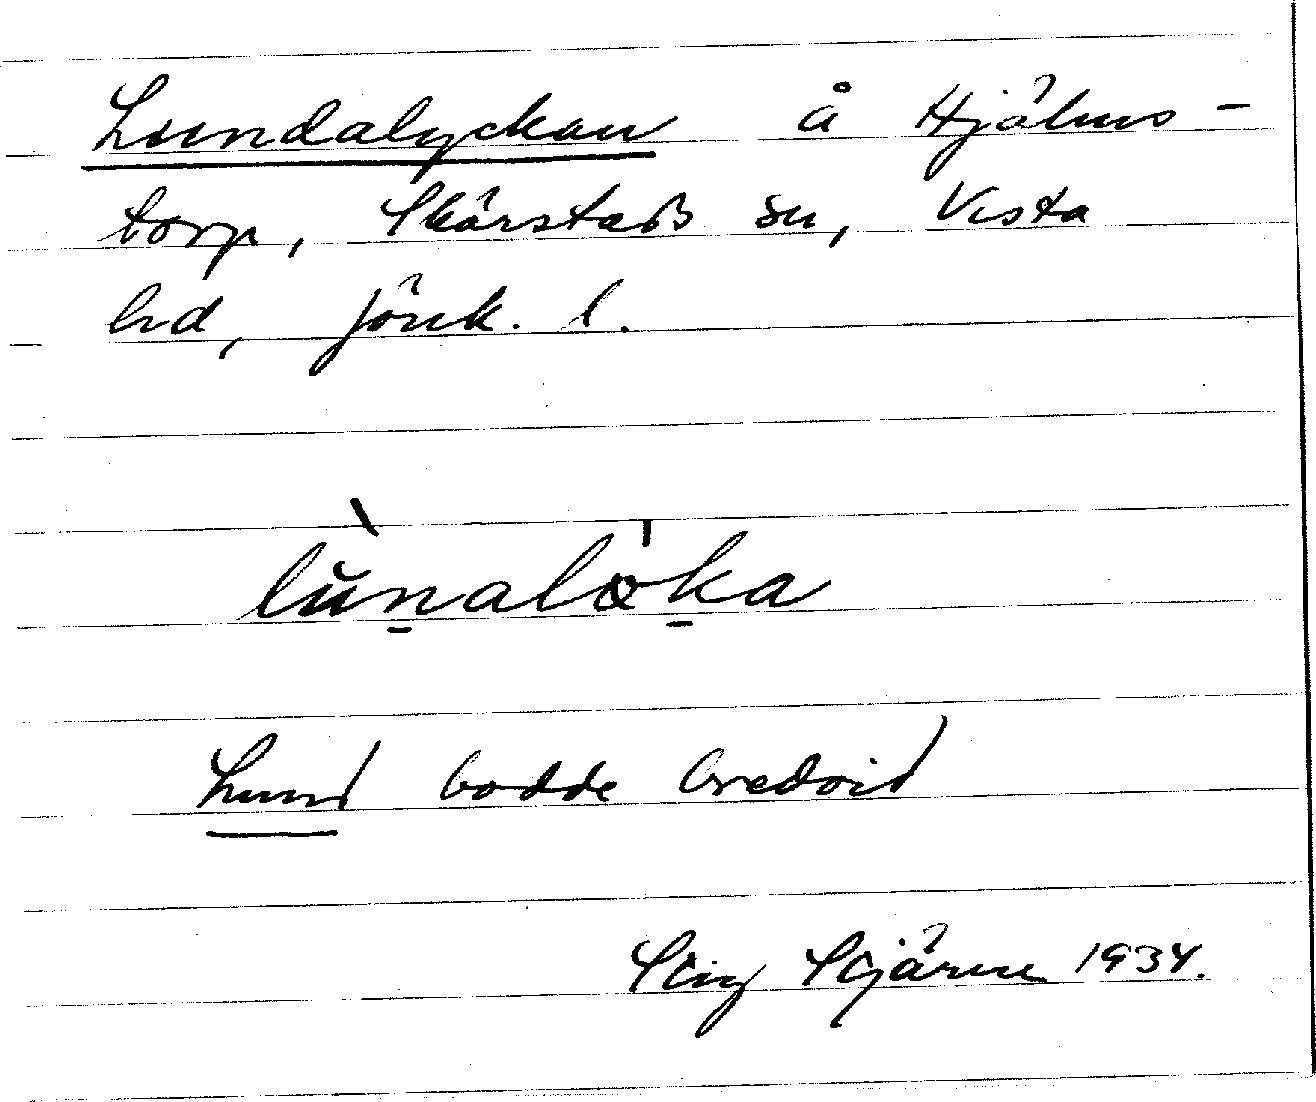 Lundalyckan å Hjälms-
torp, Skärstads sn, Vista
hd, Jönk. l.
lùnalǿka
Lund bodde bredvid
Stig Stjärne 1934.